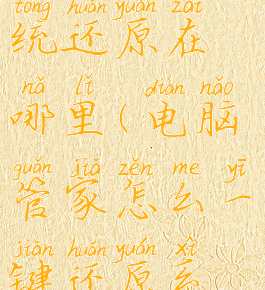 tǒng huán yuán zài
统还原在
nǎ lǐ diàn nǎo
哪里(电脑
guǎn jiā zěn me yī
管家怎么一
jiàn huán yuán xì
键还原系